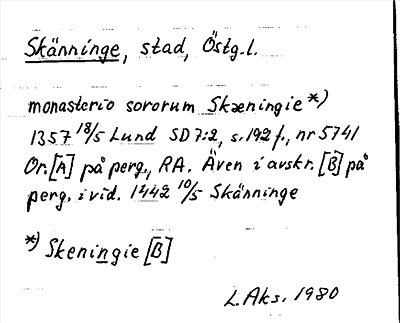 Skänninge, stad, Östg.l.
monasterio sororum Skæningie *)
1357 18/5 Lund SD 7:2, s. 192 f., nr 5741
Or. [A] på perg., RA. Även i avskr. [B] på
perg. i vid. 1442 10/5 Skänninge
*) Skeningie [B]
L. Aks. 1980